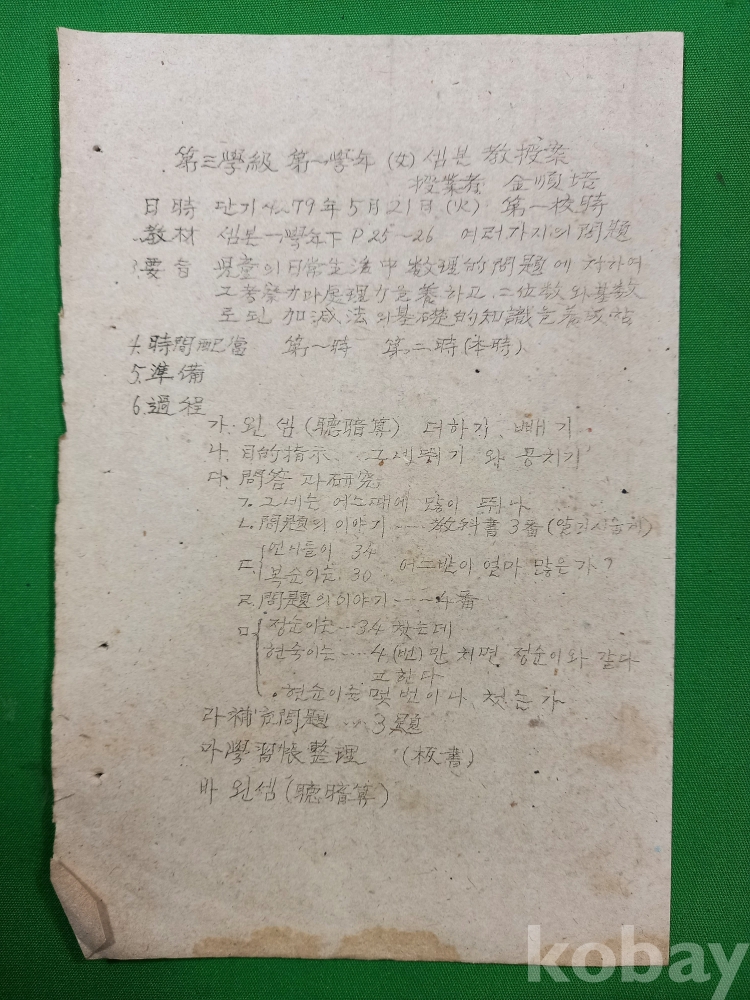 第三學級 第一學年 (女) 셈본 敎授案
授業者 金順培
日時 단기 4279年 5月 21日 (火) 第一校時
敎材 셈본 一學年下 P 25~26 여러가지의 問題
要旨 児童의 日常生活中 数理的 問題에 対하여
그 考察力과 処理力을 養하고, 二位数와 基数
로 된 加減法의 基礎的 知識을 養
4. 時間配當 第一時 第二時 (本時)
5. 準備
6. 過程
가. 왼셈 (聽暗算) 더하기, 빼기
나. 目的指示 그네뛰기 와 공치기
다. 問答과 硏究
ㄱ. 그네는 어느때에 많이 뛰나
ㄴ. 問題의 이야기 ---- 敎科書 3番
ㄷ. 34
복순이는 30 어느반이 얼마 많은가?
ㄹ. 問題의 이야기 ---- 4番
ㅁ 정순이는 --- 34 첬는데
현숙이는 ---- 4 (번)만 처면 정순이와 같다
고 한다
현순이는 몇번이나 첫는가
라 補充問題 --- 3題
마 學習帳整理 (板書)
바 왼셈 (聽暗算)
kobay